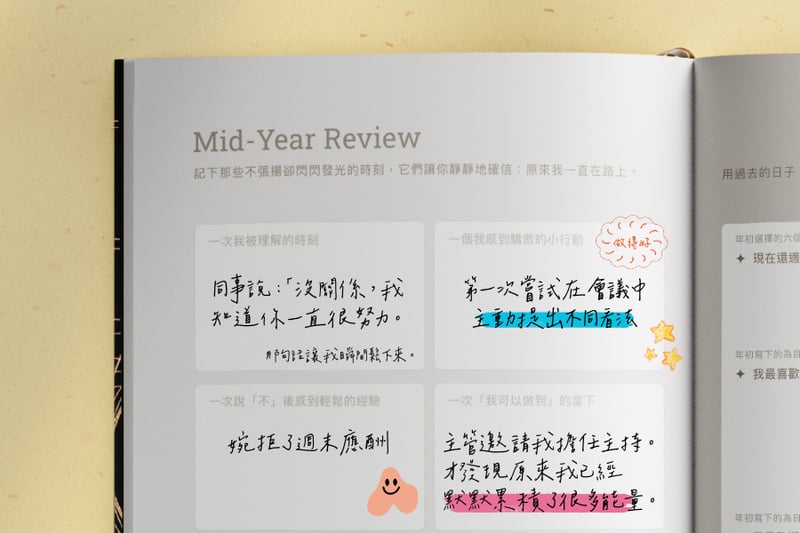 Mid-Year Review
記下那些不張揚卻閃閃發光的時刻，它們讓你靜靜地確信：原來我一直在路上。
一次我被理解的時刻
同事說：「沒關係，我
知道你一直很努力。
那句話讓我瞬間鬆下來。
一個我感到驕傲的小行動
做得好
第一次嘗試在會議中
主動提出不同看法
一次說「不」後感到輕鬆的經驗
婉拒了週末應酬
一次「我可以做到」的當下
主管邀請我擔任主持。
才發現原來我已經
默默累積了很多能量。
用過去的日子
年初選擇的六個
✦ 現在還適
年初寫下的為自
✦ 我最喜歡
年初寫下的為自